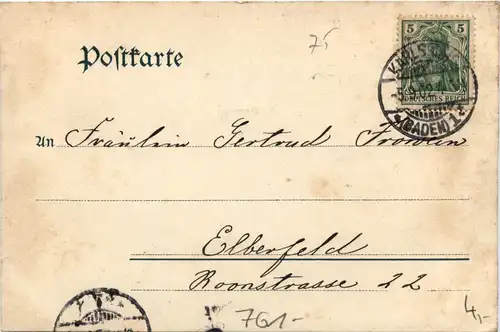 75
5 5
DEUTSCHES REICH
(BADEN)
Postkarte
An Fräulein Gertrud Frowein
Elberfeld
Roonstrasse 22
761-
4,-